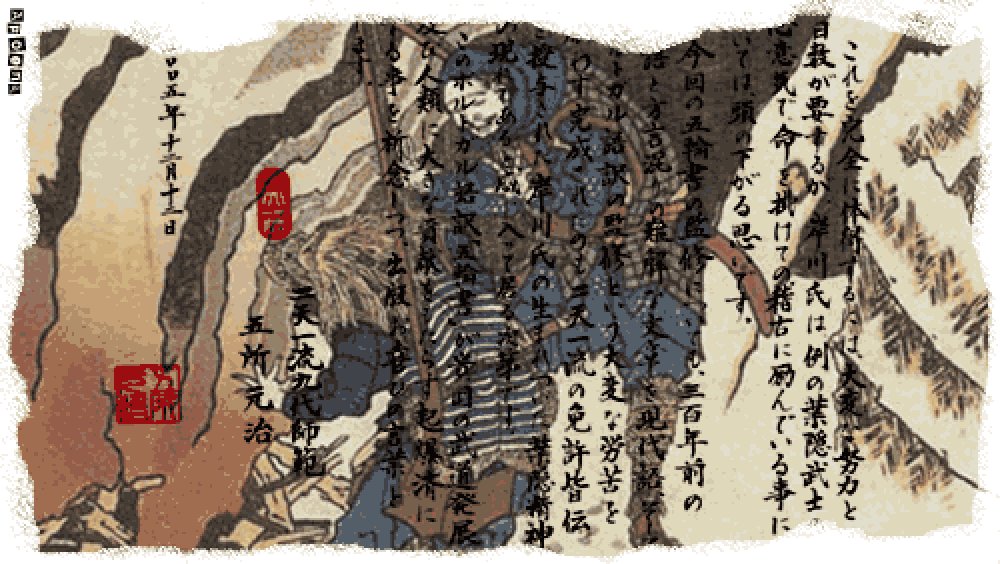 これを完全に体得するには、大変な努力と
日数が要するが、岸川氏は例の葉隠武士の
心意気で命を掛けての稽古に励んでいる事に
いては頭の下がる思いです。
今回の五輪書の監修に、三百年前の
語と方言混りの難解な文章を現代語そして
トガル語訳の監修という大変な労苦を
わず完成されたのも二天一流の免許皆伝
を授与された岸川氏の生れ葉隠精神
の現れであると感じ入って居る次第です
このポルトガル語訳五輪書が各国の武道発展
及び人類に大きな貢献をもたらす起爆剤に
なる事を祈念しつつ出版お喜びの言葉と
ます
五年十二月十三日
二天一流九代師範
五所元治